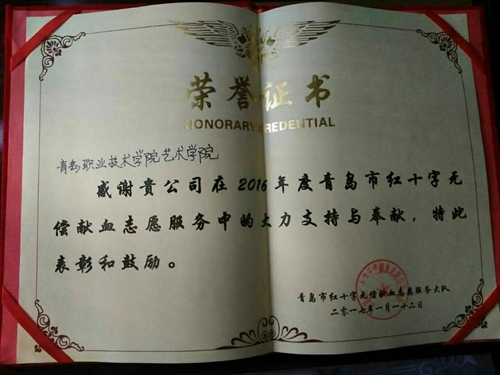 荣誉证书
HONORARY CREDENTIAL
青岛职业技术学院艺术学院
感谢贵公司在2016年度青岛市红十字无
偿献血志愿服务中的大力支持与奉献，特此
表彰和鼓励。
青岛市红十字无偿献血志愿服务大队
二零一七年一月一十二日